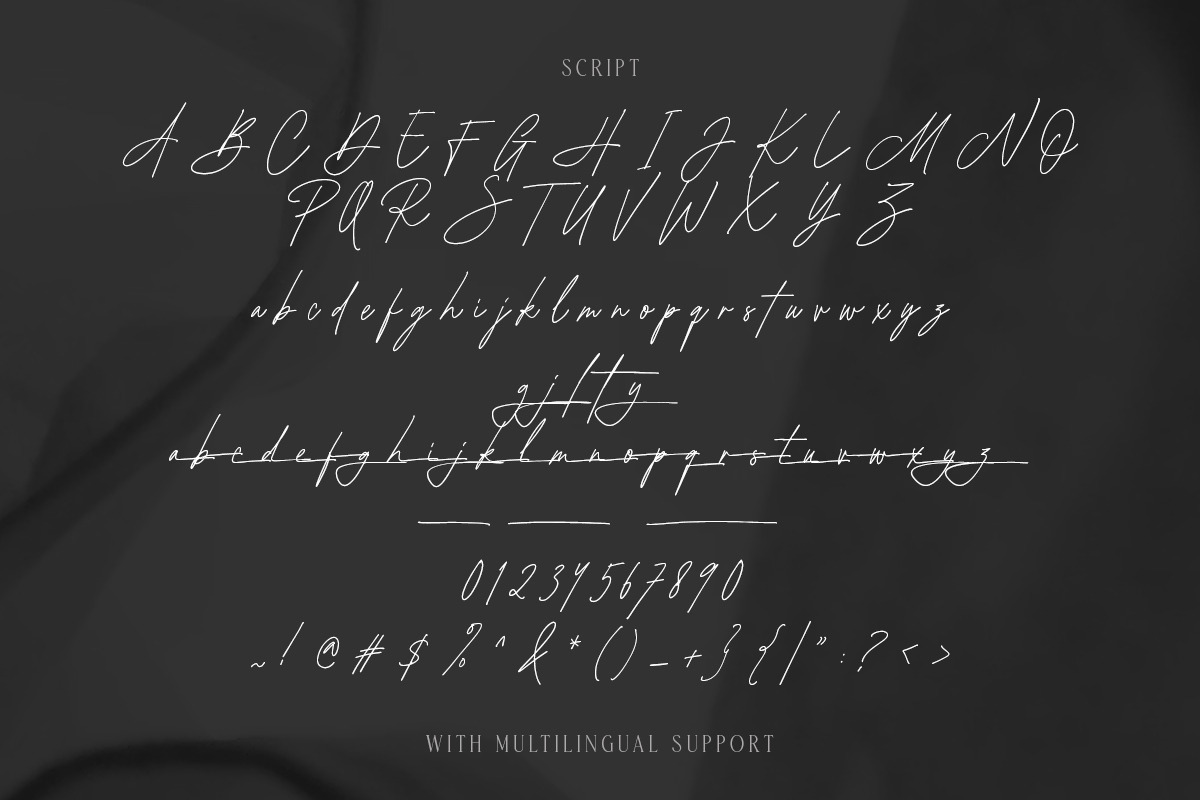 SCRIPT
A B C D E F G H I J K L M N O
P Q R S T U V W X Y Z
a b c d e f g h i j k l m n o p q r s t u v w x y z
g j l t y
a b c d e f g h i j k l m n o p q r s t u v w x y z
01234567890
~ ! @ # $ % ^ & * ( ) _ + } { | " : ? < >
WITH MULTILINGUAL SUPPORT